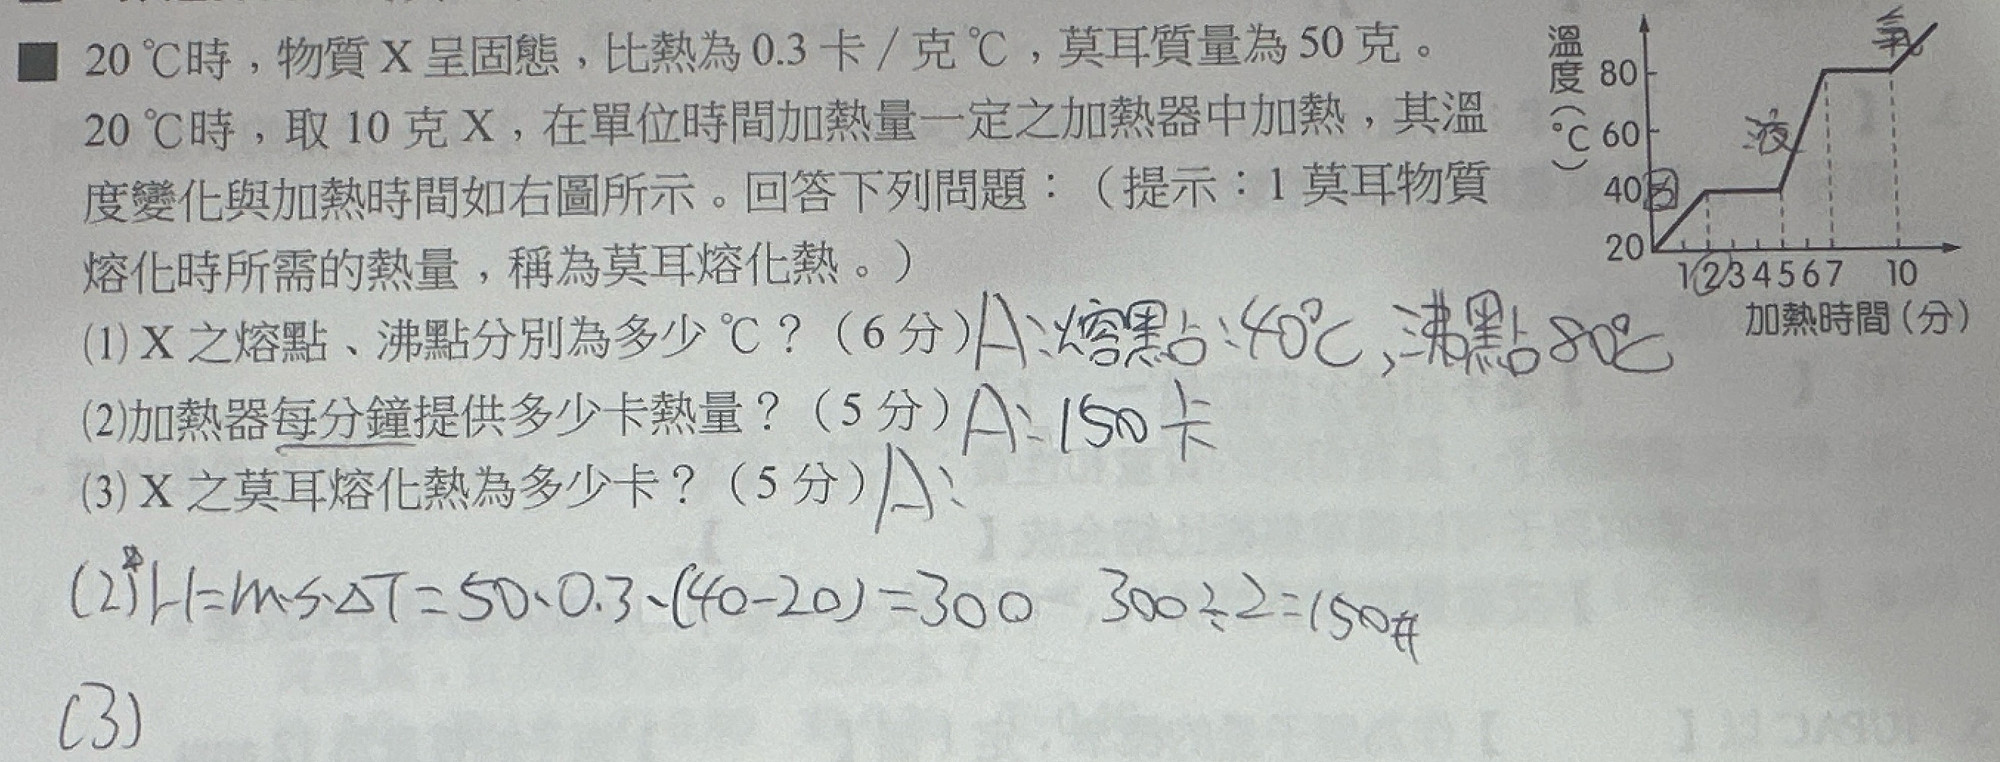 ■ 20 ℃時，物質 X 呈固態，比熱為 0.3 卡／克 ℃，莫耳質量為 50 克。
20 ℃時，取 10 克 X，在單位時間加熱量一定之加熱器中加熱，其溫
度變化與加熱時間如右圖所示。回答下列問題：（提示：1 莫耳物質
熔化時所需的熱量，稱為莫耳熔化熱。）
溫度(℃)
80
60
40 固
20
液
氣
1 2 3 4 5 6 7 10
加熱時間(分)
(1) X 之熔點、沸點分別為多少 ℃？（6 分）A：熔點：40℃，沸點80℃
(2)加熱器每分鐘提供多少卡熱量？（5 分）A：150卡
(3) X 之莫耳熔化熱為多少卡？（5 分）A：
(2) H=m·s·ΔT=50·0.3·(40-20)=300 300÷2=150#
(3)